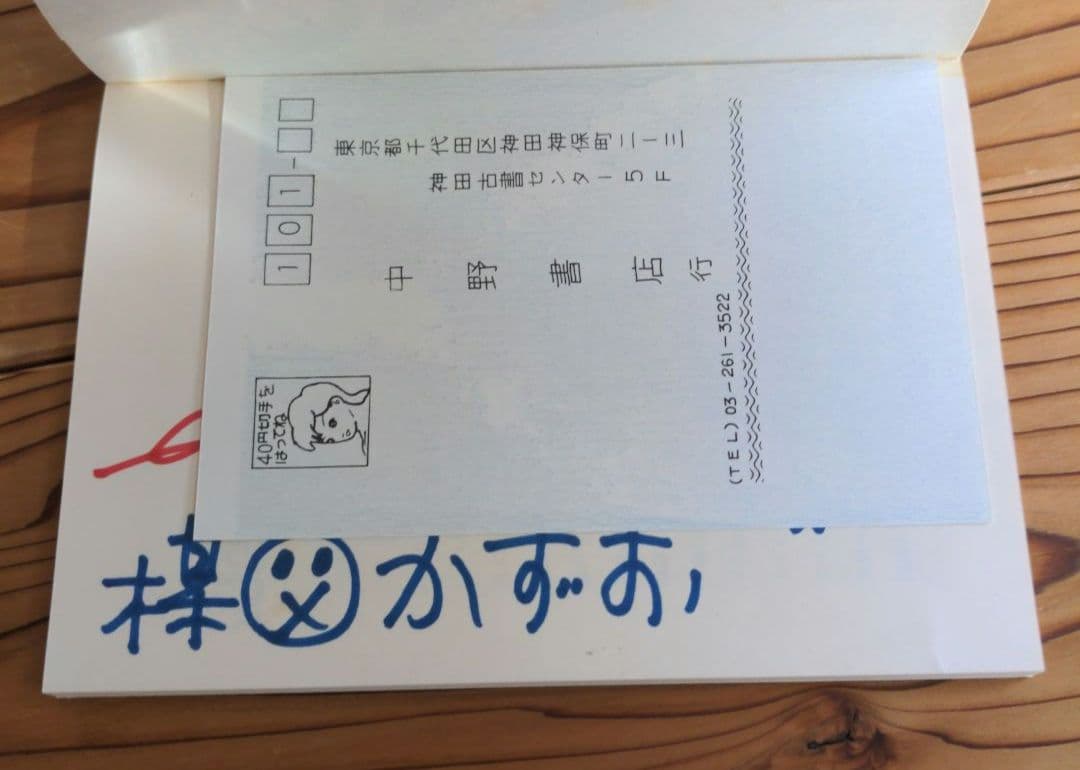 101-
東京都千代田区神田神保町二ー三
神田古書センター5F
中野書店行
40円切手を
はってね
(TEL) 03-261-3522
楳
かずお